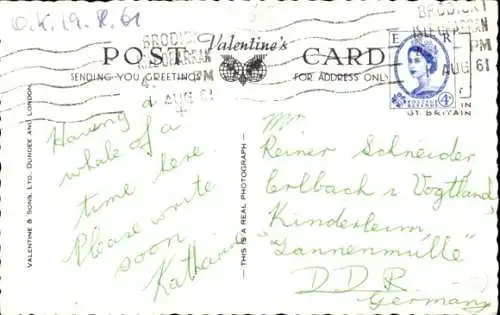 O.K. 19. 8. 61
BRODICK
ISLE OF ARRAN
PM
AUG 61
BRODICK
ISLE OF ARRAN
PM
AUG 61
POST Valentine's CARD
SENDING YOU GREETINGS FOR ADDRESS ONLY
E R
POSTAGE REVENUE
4D
GT. BRITAIN
VALENTINE & SONS, LTD. DUNDEE AND LONDON
THIS IS A REAL PHOTOGRAPH
Having a
whale of a
time here.
Please write
soon
Katharine
Mr
Reiner Schneider
Erlbach i Vogtland
Kinderheim
"Tannenmülle"
D D R
Germany